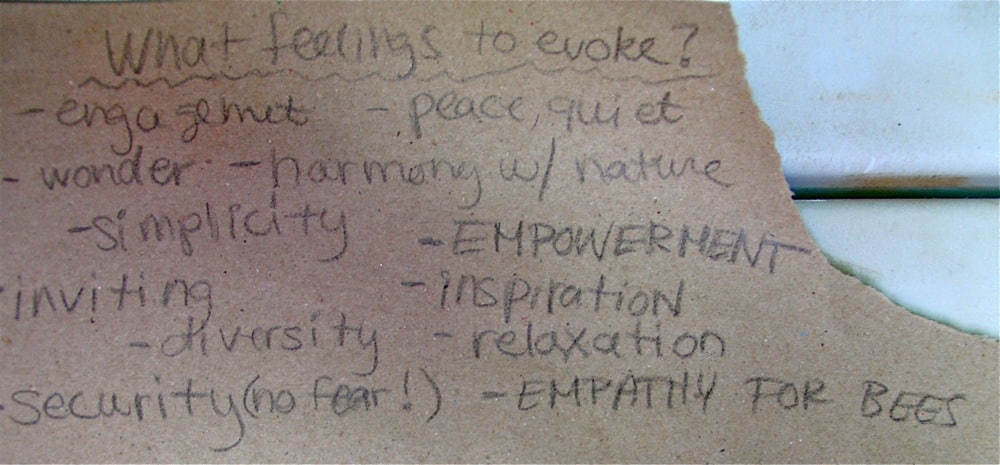 What feelings to evoke?
- engagemnt - peace, quiet
- wonder - harmony w/ nature
- simplicity - EMPOWERMENT
- inviting - inspiration
- diversity - relaxation
- security (no fear!) - EMPATHY FOR BEES